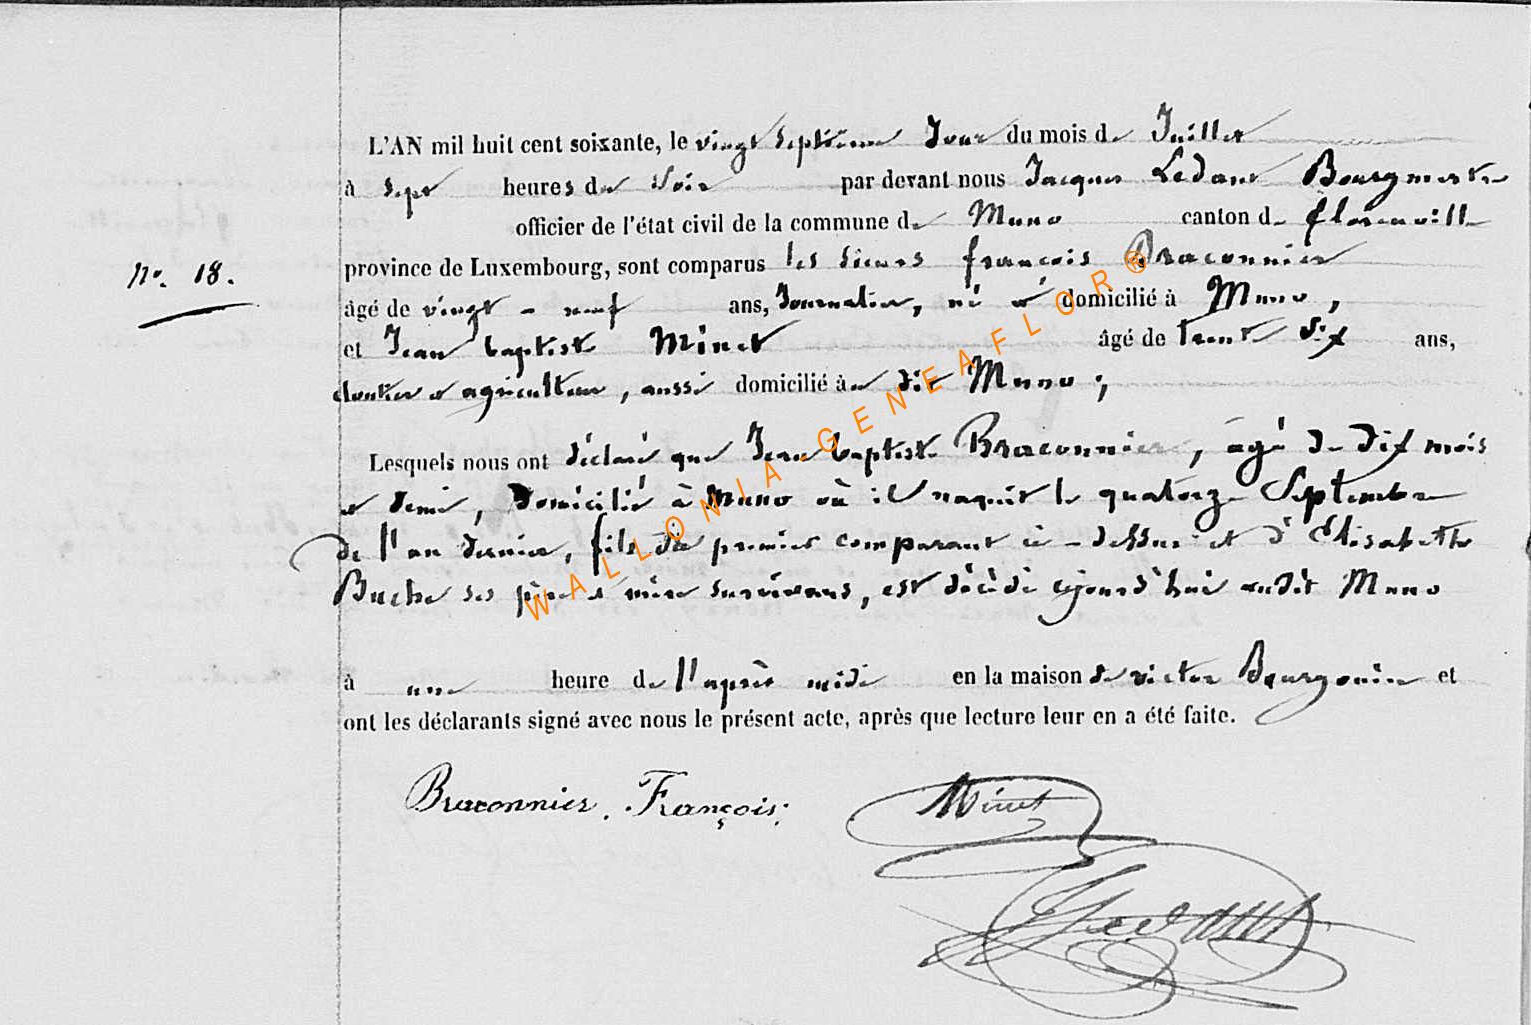 L'AN mil huit cent soixante, le vingt septième Jour du mois de Juillet
à sept heures du Soir par devant nous Jacques Ledant Bourgmestre
officier de l'état civil de la commune de Muno canton de florenville
N°. 18.
province de Luxembourg, sont comparus les Sieurs françois Braconnier
âgé de vingt - neuf ans, Journalier, né et domicilié à Muno,
et Jean baptiste Minet âgé de trente Six ans,
cloutier et agriculteur, aussi domicilié à dit Muno ;
Lesquels nous ont déclaré que Jean baptiste Braconnier, âgé de dix mois
et demi, Domicilié à Muno où il naquit le quatorze Septembre
de l'an dernier, fils du premier comparant ci-dessus et d'Elisabeth
Buche ses père et mère survivans, est décédé cejourd'hui audit Muno
à une heure de l'après midi en la maison de victor Bourguin et
ont les déclarants signé avec nous le présent acte, après que lecture leur en a été faite.
Braconnier. François. Minet
Ledant
WALLONIA-GENEAFLOR®